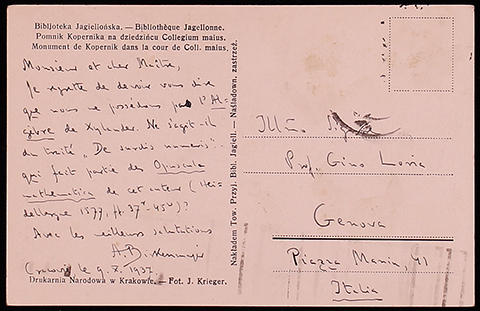 Bibljoteka Jagiellońska. — Bibliothèque Jagellonne.
Pomnik Kopernika na dziedzińcu Collegium maius.
Monument de Kopernik dans la cour de Coll. maius.
Monsieur et cher Maître,
Je regrette de devoir vous dire
que nous ne possédons pas l'Al-
gèbre de Xylander. Ne s'agit-il
du traité „De surdis numeris"
qui fait partie des Opuscula
mathematica de cet auteur (Hei-
delbergae 1577, ff. 37r-45v)?
Avec les meilleurs salutations
A. Birkenmajer
Cracovie le 9. X. 1937.
Drukarnia Narodowa w Krakowie. — Fot. J. Krieger.
Nakładem Tow. Przyj. Bibl. Jagiell. — Naśladown. zastrzeż.
Illmo
Prof. Gino Loria
Genova
Piazza Manin, 41
Italia